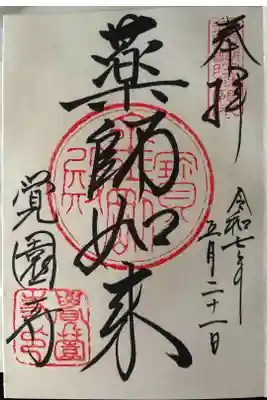 奉拝
令和七年
五月二十一日
薬師如来
覚園寺